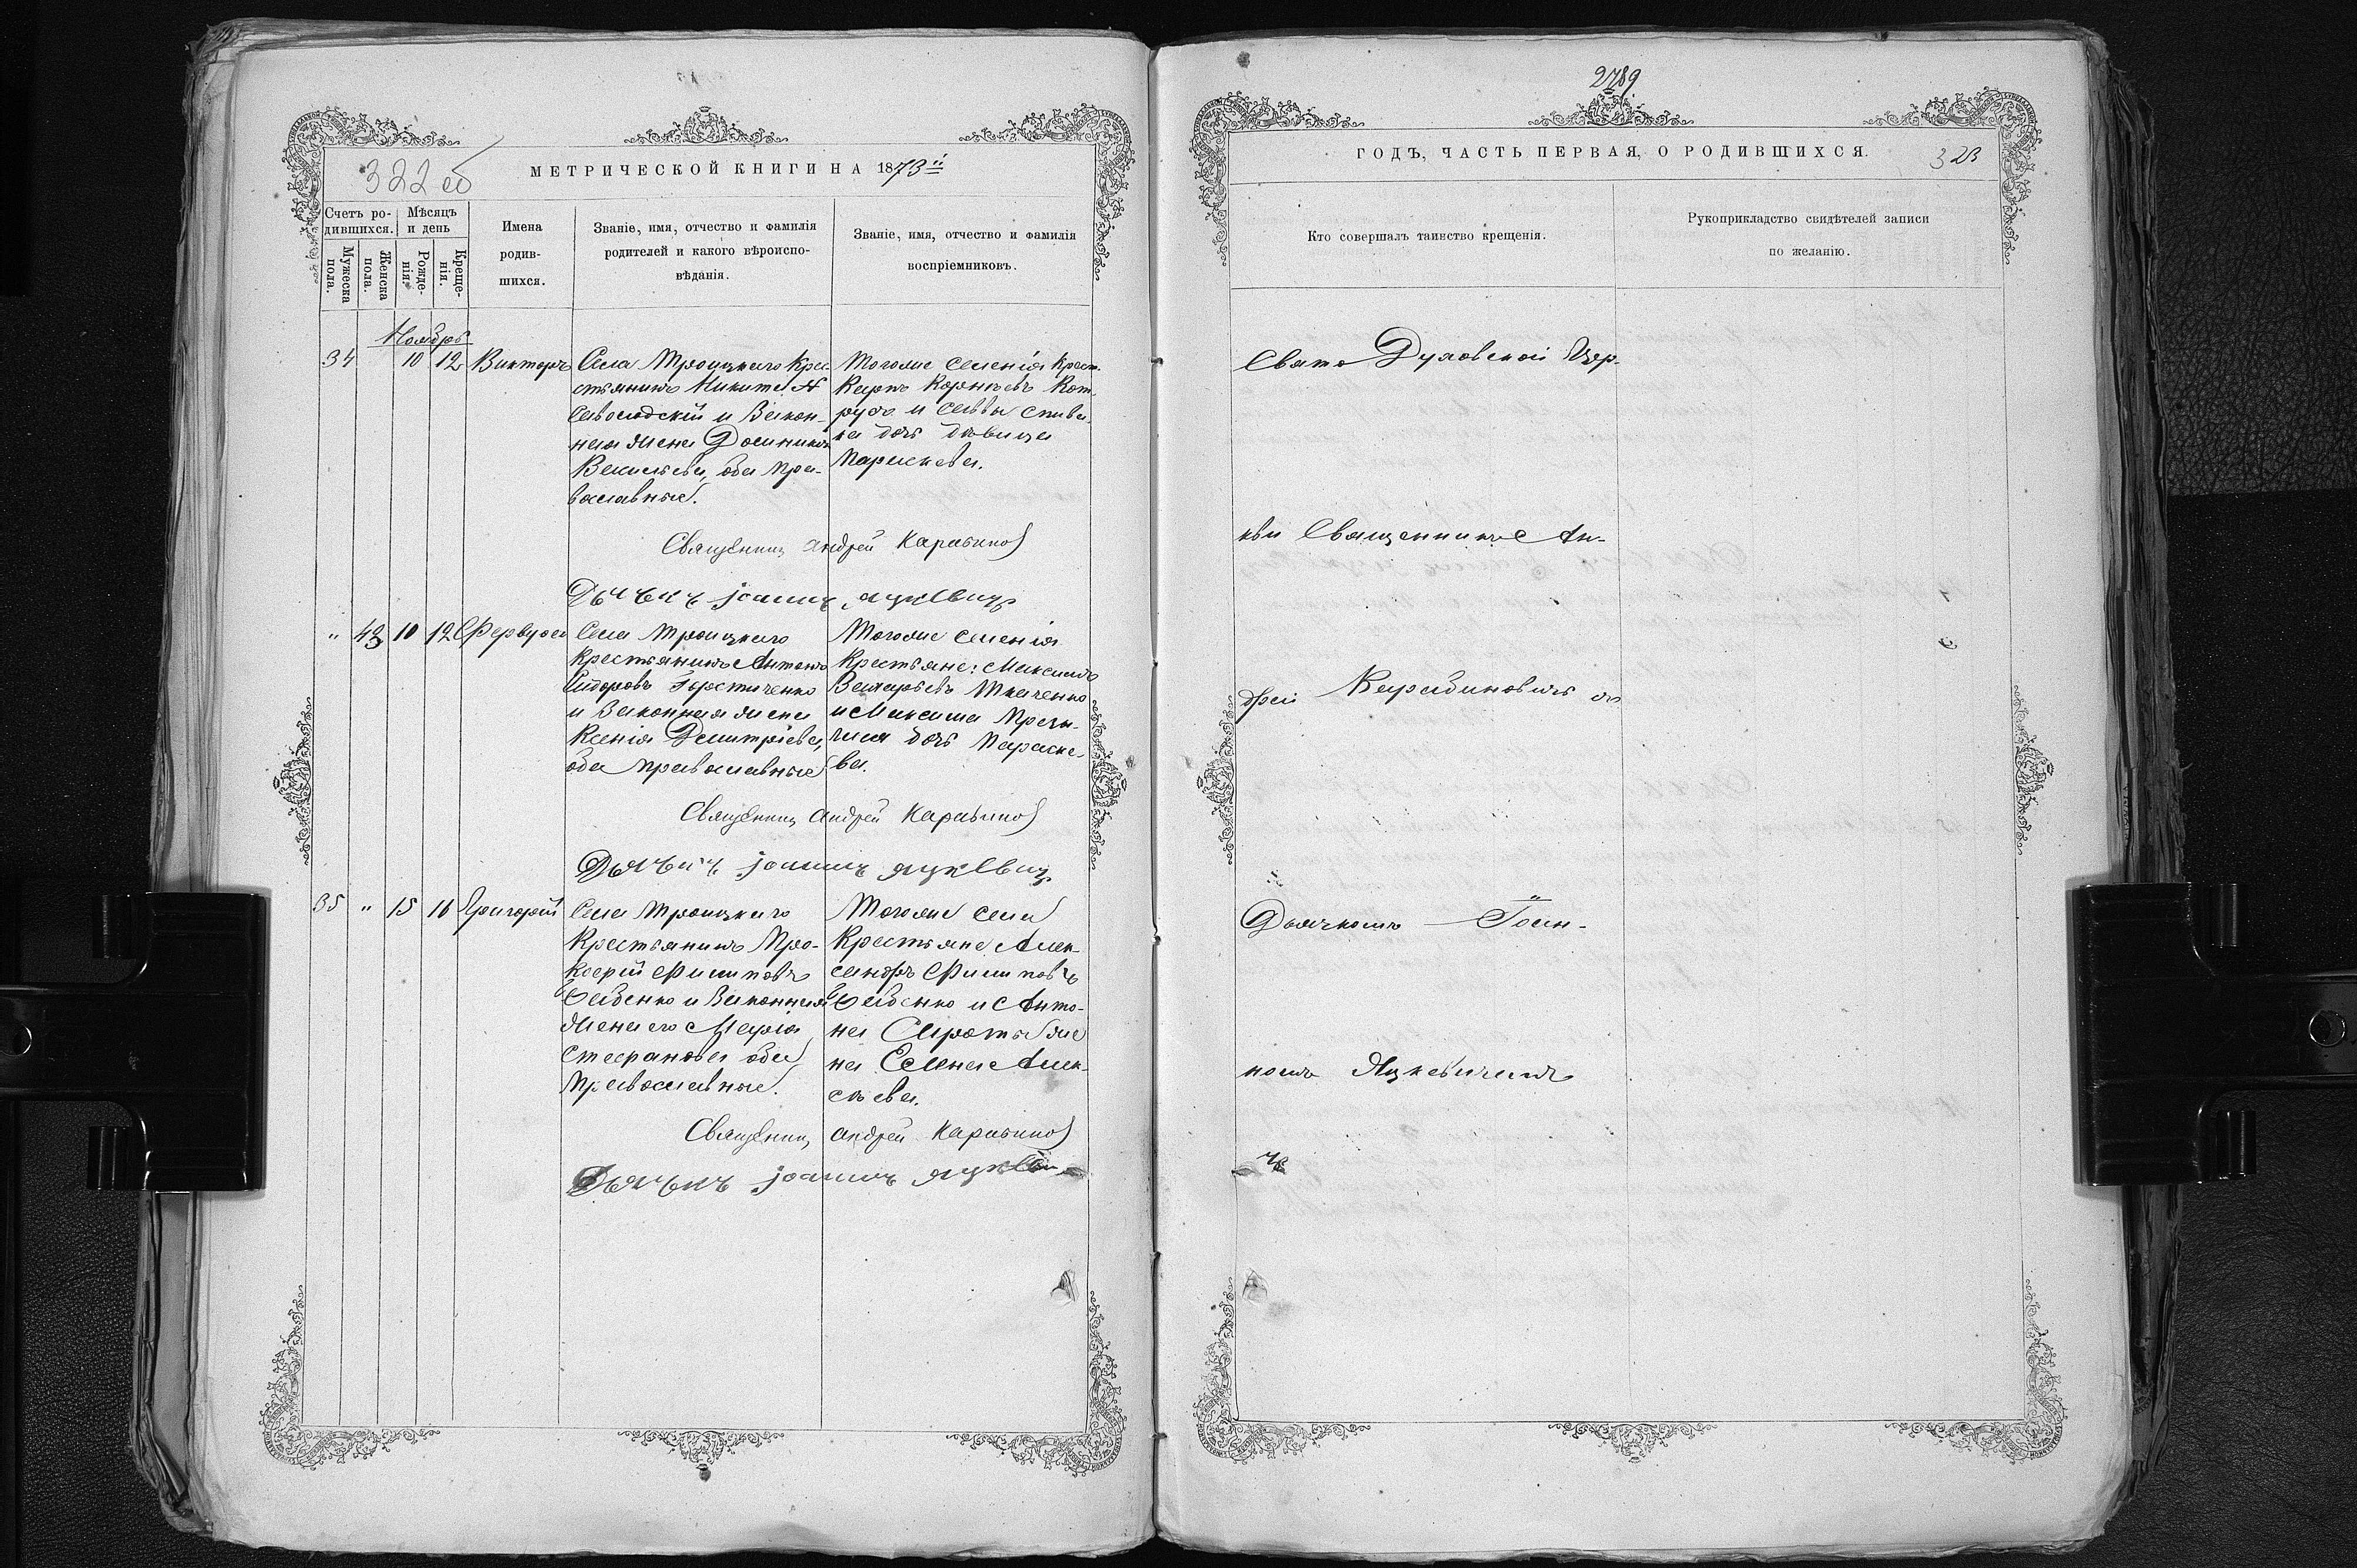 322 об
МЕТРИЧЕСКОЙ КНИГИ НА 1873й
Счетъ ро-
дившихся.
Мѣсяцъ
и день
Мужеска
пола.
Женска
пола.
Рожде-
нія.
Креще-
нія.
Имена
родив-
шихся.
Званіе, имя, отчество и фамилія
родителей и какого вѣроиспо-
вѣданія.
Званіе, имя, отчество и фамилія
воспріемниковъ.
Ноябрь
34 10 12 Викторъ
Села Троицкаго Кре-
стьянинъ Никита
и Закон-
ная жена
Васильева, оба Пра-
вославные.
Тогоже селенія Крест.
Карпъ Корнѣевъ Кот
и Саввы Спива
ка дочь дѣвица
Параскева.
Священникъ Андрей Карабинов
Дьячекъ Іоаннъ Яцкевичъ
" 43 10 12
Села Троицкаго
Крестьянинъ Антонъ
Сидоровъ
и Законная жена
Ксенія Димитріева,
оба Православные
Тогоже селенія
Крестьяне: Максимъ
Захарьевъ Ткаченко
и Максима
дочь Параске-
ва.
Священникъ Андрей Карабинов
Дьячекъ Іоаннъ Яцкевичъ
35 " 15 16 Григорій
Села Троицкаго
Крестьянинъ Про-
кофій Филиповъ
и Законная
жена его Марія
Стефанова оба
Православные.
Тогоже села
Крестьяне Алек-
сандръ Филиповъ
и Анто-
на Сироты же
на Елена Алек-
сѣева.
Священникъ Андрей Карабинов
Дьячекъ Іоаннъ Яцкеви
2789
ГОДЪ, ЧАСТЬ ПЕРВАЯ, О РОДИВШИХСЯ.
323
Кто совершалъ таинство крещенія.
Рукоприкладство свидѣтелей записи
по желанію.
Свято Духовской Цер-
кви Священникъ Ан-
дрей Карабиновичъ съ
Дьячкомъ Іоан-
номъ Яцкевичемъ